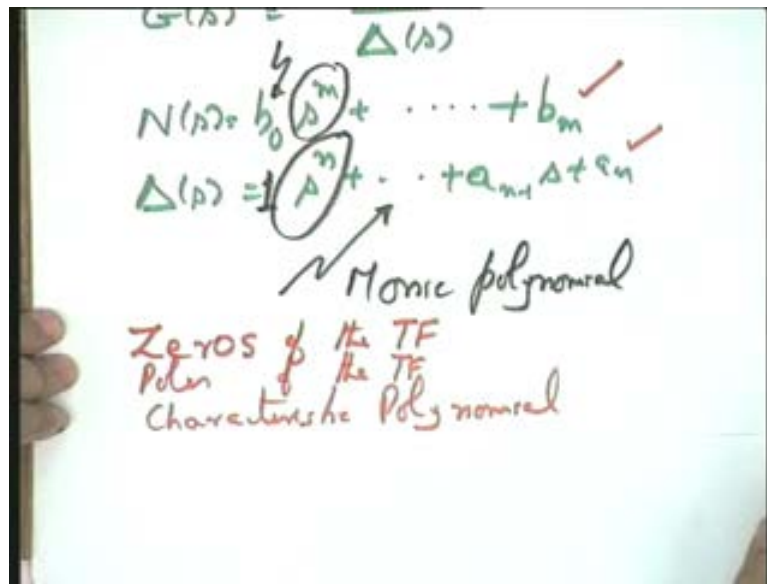 G(s) =
Δ(s)
N(s) = b₀ s^m + · · · · + b_m
Δ(s) = 1 s^n + · · + a_{n-1} s + a_n
Monic polynomial
Zeros of the TF
Poles of the TF
Characteristic Polynomial